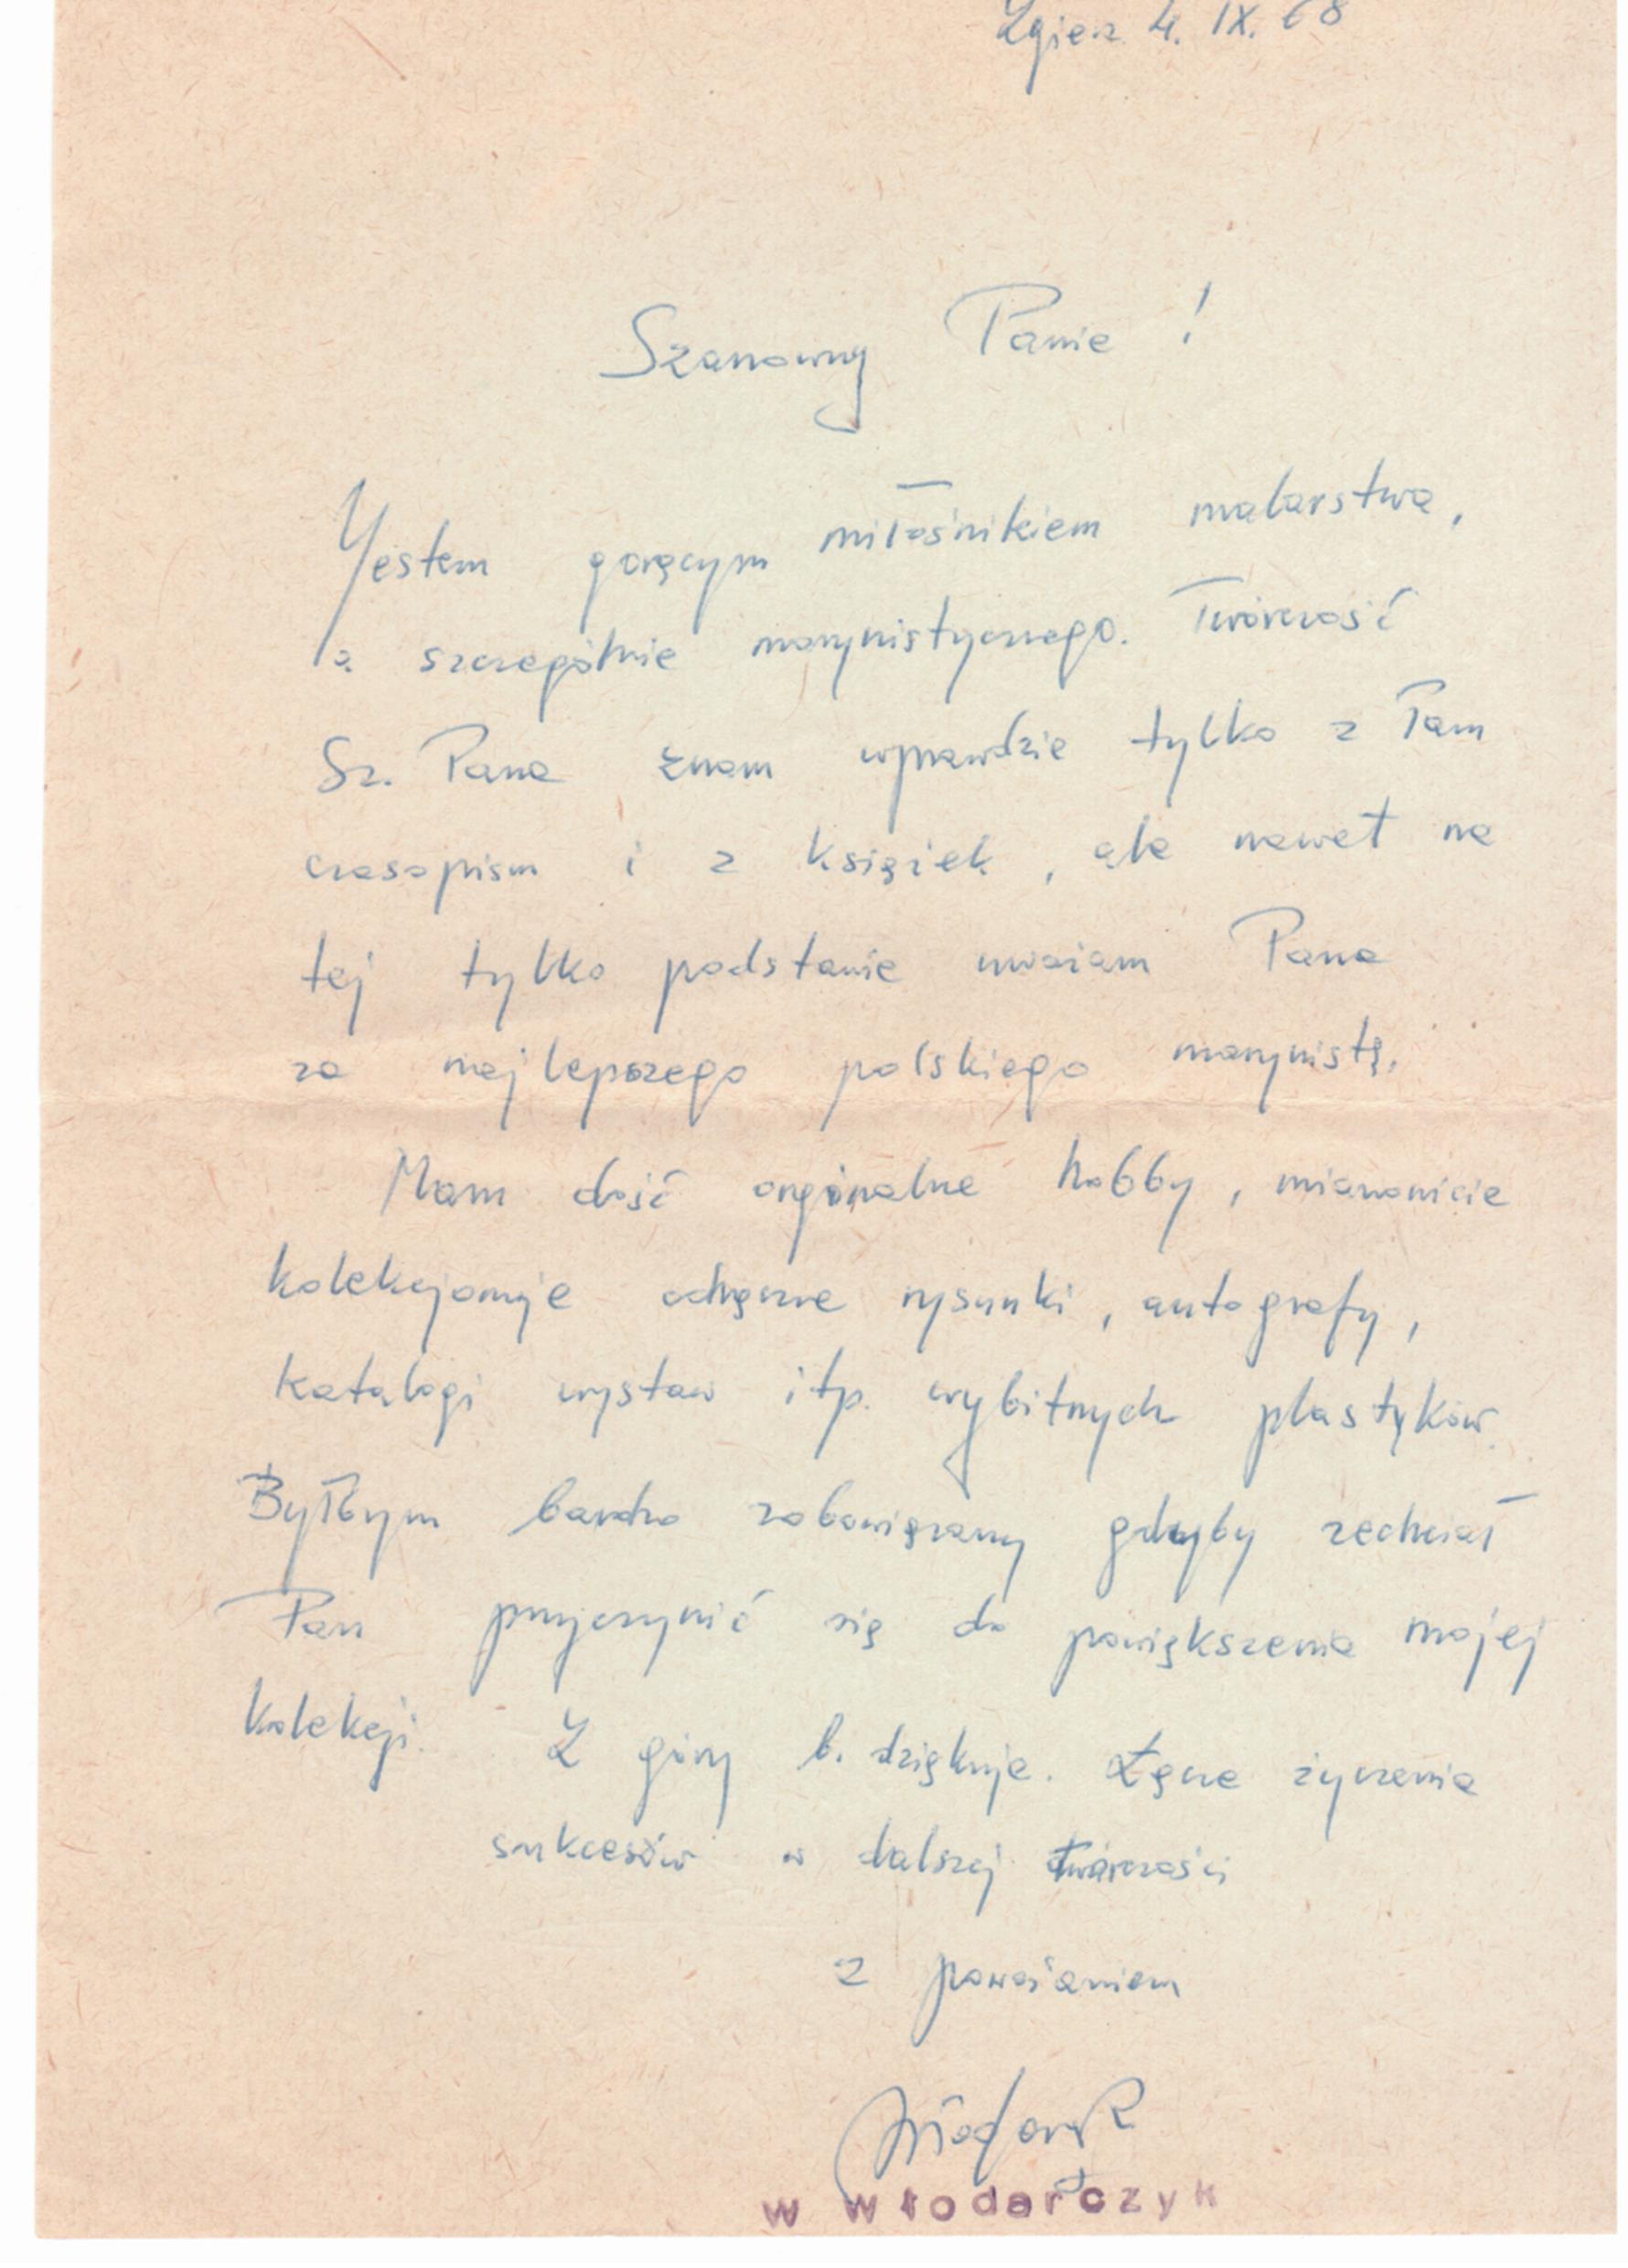 Zgierz 4. IX. 68
Szanowny Panie !
Jestem gorącym miłośnikiem malarstwa,
a szczególnie marynistycznego. Twórczość
Sz. Pana znam wprawdzie tylko z łam
czasopism i z książek, ale nawet na
tej tylko podstawie uważam Pana
za najlepszego polskiego marynistę.
Mam dość orginalne hobby, mianowicie
kolekcjonuje odręczne rysunki, autografy,
katalogi wystaw itp. wybitnych plastyków.
Byłbym bardzo zobowiązany gdyby zechciał
Pan przyczynić się do powiększenia mojej
kolekcji. Z góry b. dziękuje. Łącze życzenia
sukcesów w dalszej twórczości
z poważaniem
W Włodarczyk